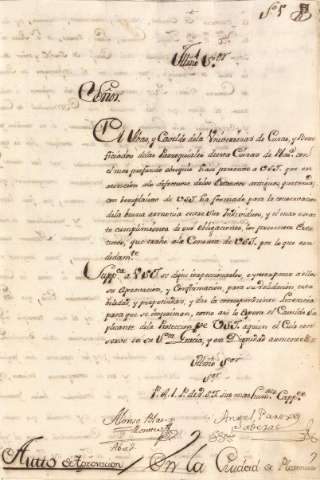 Illmo Sor
Señor.
El Abad, y Cavildo de la Universidad de Curas, y Bene
ficiados de las Parroquiales de esta Ciudad de
con el mas profundo obsequio hace presente a V.S.I. que en
atencion a lo
con beneplacito de V.S.I. ha formado para la conservacion
de la buena armonia entre sus Individuos, y el mas exac
to cumplimiento de sus obligaciones, los presentes Esta
tutos, que exsive a la Censura de V.S.I. por lo que ren
didamte
Suppca a V.S.I. se digne inspeccionarlos, y interponer a ellos
su Aprovacion, y Confirmacion para su validacion
y perpetuidad, y dar la correspondiente licencia
para que se impriman, como asi lo espera el Cavildo Su
plicante de la Proteccion de V.S.I. a quien el Cielo con
serve en su Sta Gracia, y en Dignidad
Illmo Sor
Sor
P. A. L. P. de V.S.I. sus mas humildes Cappes
Alonso Blas
Abad
Angel
Auto de Aprovacion / En la Ciudad de Plasencia